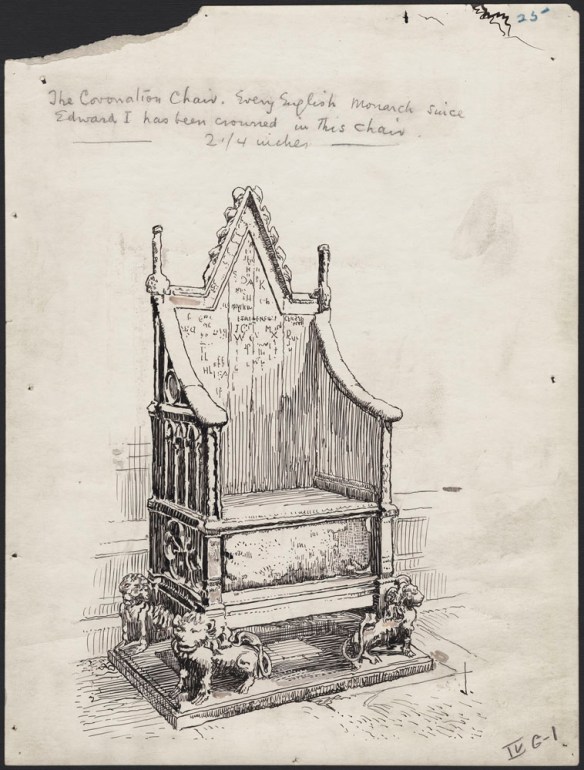 25
The Coronation Chair. Every English Monarch since
Edward I has been crowned in this chair.
2 1/4 inches
IV G-1